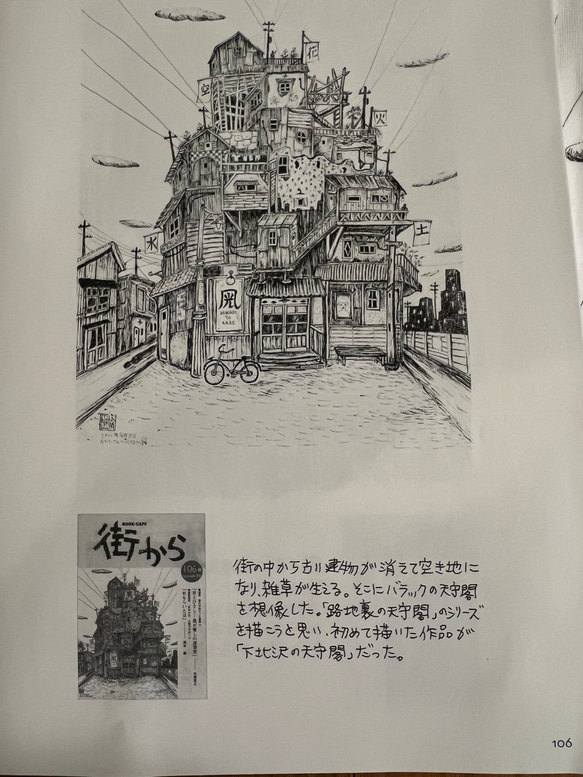 花
空
火
水
土
凧
BOOK-CAFE
街から
106号
街の中から古い建物が消えて空き地に
なり、雑草が生える。そこにバラックの天守閣
を想像した。「路地裏の天守閣」のシリーズ
を描こうと思い、初めて描いた作品が
「下北沢の天守閣」だった。
106